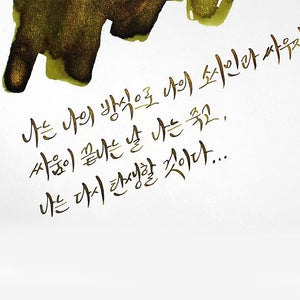 나는 나의 방식으로 나의 소시인과 싸우고
싸움이 끝나는 날 나는 죽고,
나는 다시 탄생할 것이다...